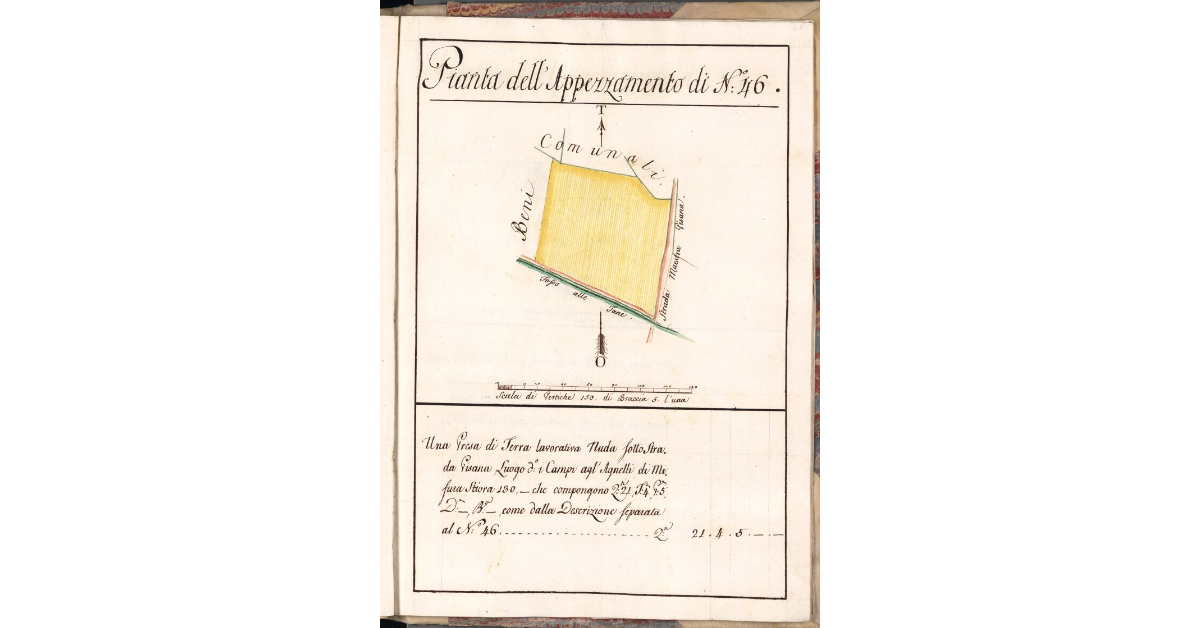 Pianta dell'Appezzamento di N:º 46.
T
Comunali.
Beni
Strada Maestra Pisana.
Fosso alle Tane.
O
Scala di Pertiche 150. di Braccia 5. l'una
Una Presa di Terra lavorativa Nuda sotto Stra-
da Pisana Luogo d:º i Campi agl'Agnelli di Mi-
sura Stiora 130, — che compongono Q:ª 21, S:ª 4, P:ª 5,
D:ª —, B:ª —, come dalla Descrizione separata
al N:º 46 . . . . . . . . . . . . . . . . . . . . . . Q:ª 21 . 4 . 5 . — . —